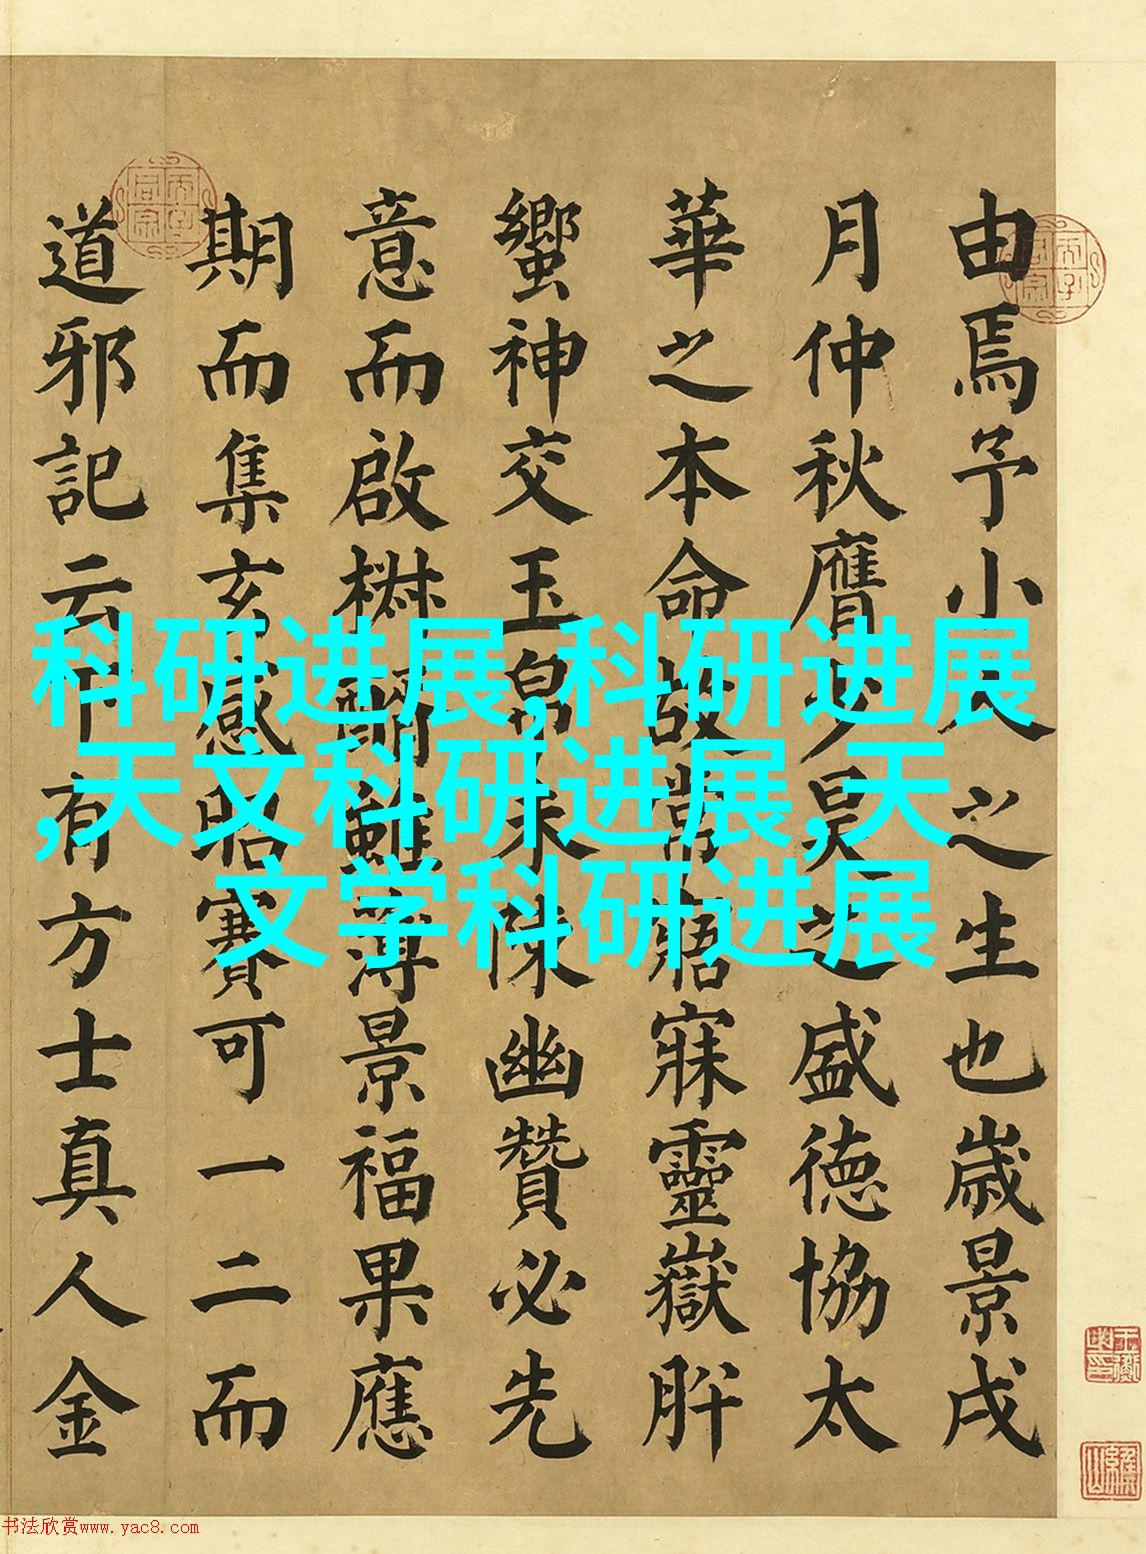 由焉予小之生也歲景戌
月仲秋膺少昊之盛德協太
華之本命故常寤寐靈嶽肸
蠁神交玉帛未陳幽贊必先
意而啟酬雖薄景福果應
期而集玄感昭賽可一二而
道邪記云有方士真人金
科研进展,科研进展
,天文科研进展,天
文学科研进展
书法欣赏www.yac8.com